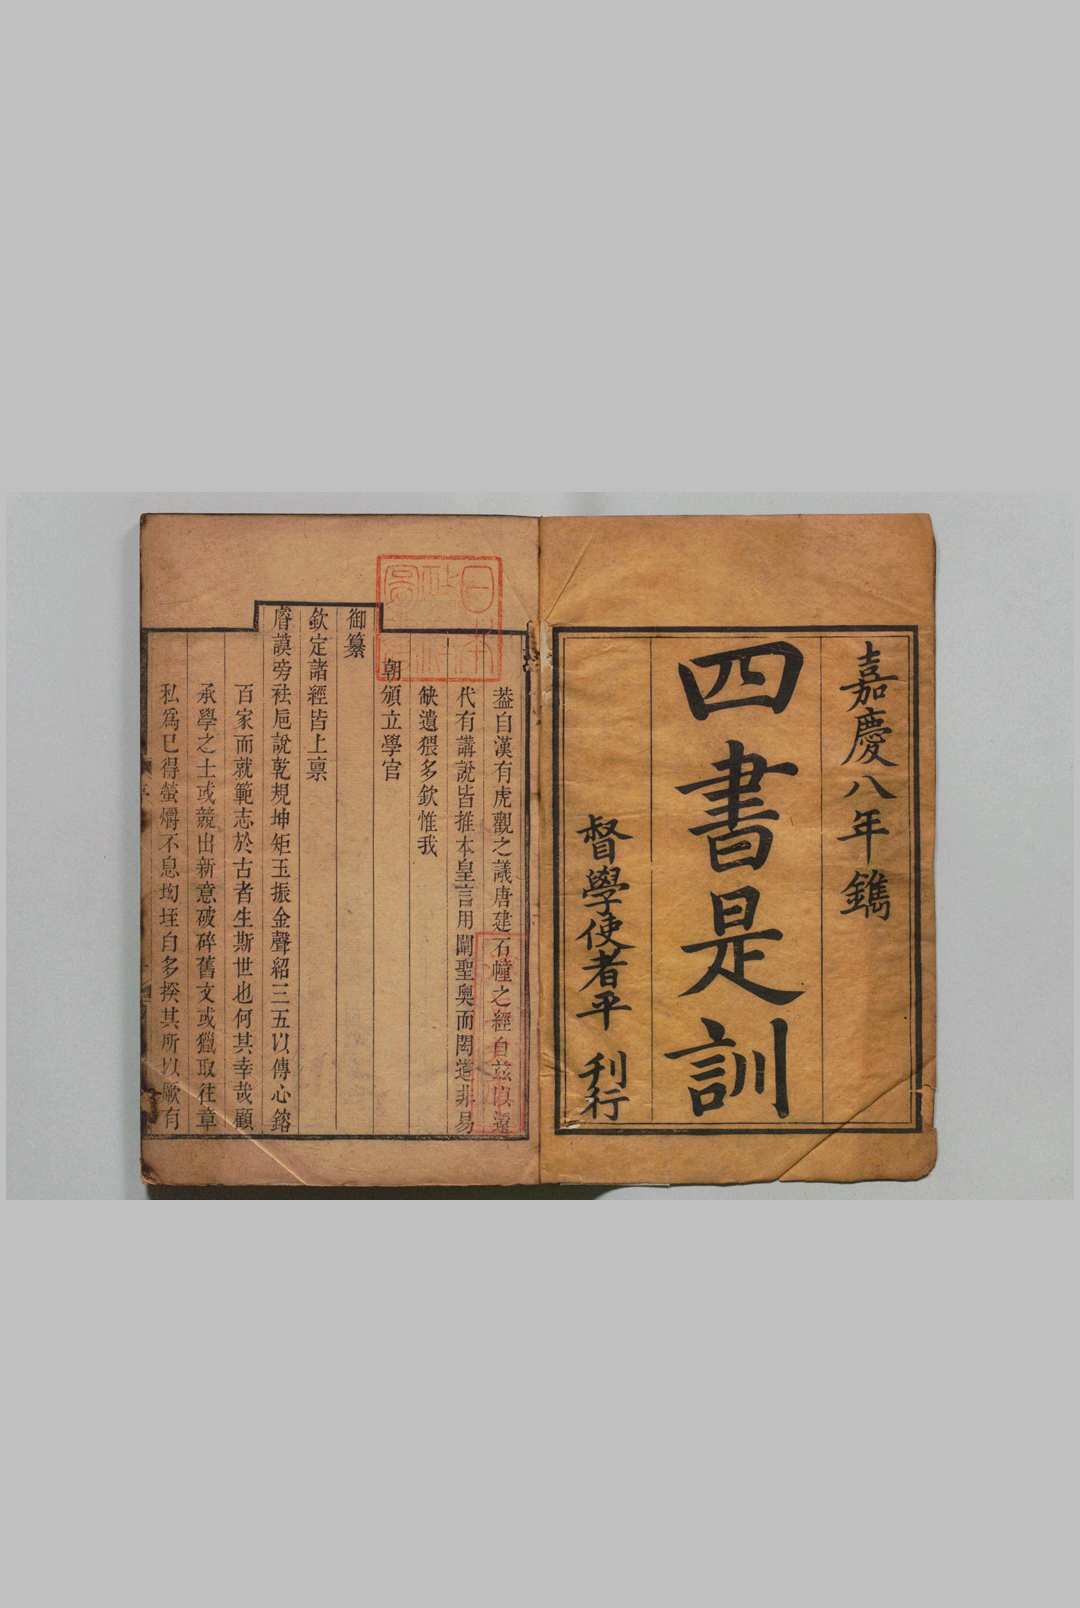 嘉慶八年鐫
四書是訓
督學使者平 刋行
葢自漢有虎觀之議唐建石幢之經自茲以還
代有講說皆推本皇言用闡聖奧而閎道非易
缺遺猥多欽惟我
朝頒立學官
御纂
欽定諸經皆上稟
睿謨旁袪巵說乾規坤矩玉振金聲紹三五以傳心鎔
百家而就範志於古者生斯世也何其幸哉顧
承學之士或競出新意破碎舊文或獵取往章
私爲已得螢爝不息坳垤自多揆其所以厥有